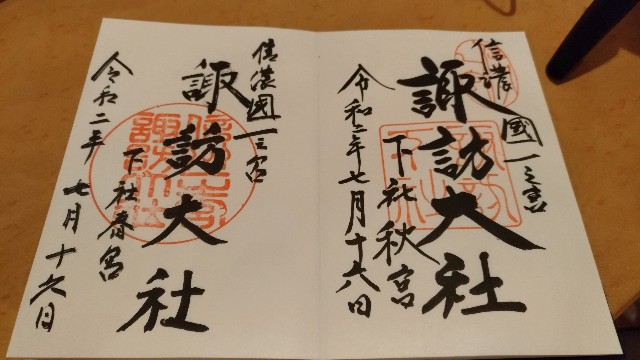 信濃國一之宮
諏訪大社
下社秋宮
令和二年七月十六日
信濃國一之宮
諏訪大社
下社春宮
令和二年七月十六日